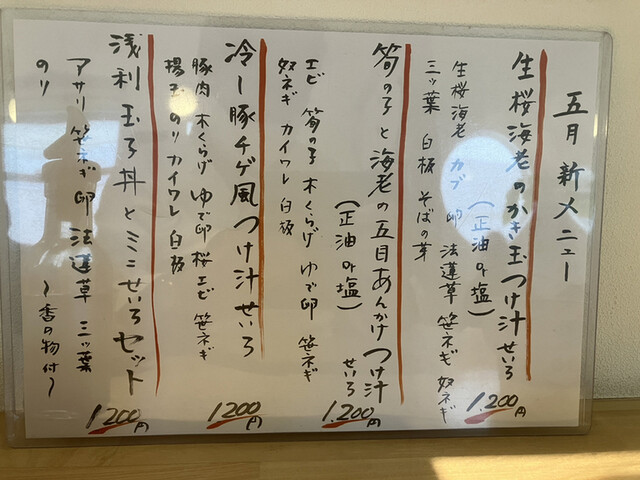 五月 新メニュー
生桜海老のかき玉つけ汁せいろ
(正油or塩)
生桜海老 カブ 卵 法蓮草 笹ネギ 奴ネギ
三ッ葉 白板 そばの芽
1.200円
筍の子と海老の五目あんかけつけ汁せいろ
(正油or塩)
エビ 筍の子 木くらげ ゆで卵 笹ネギ
奴ネギ カイワレ 白板
1.200円
冷し豚チゲ風つけ汁せいろ
豚肉 木くらげ ゆで卵 桜エビ 笹ネギ
揚玉 のり カイワレ 白板
1200円
浅利玉子丼とミニせいろセット
アサリ 笹ネギ 卵 法蓮草 三ッ葉
のり
〜香の物付〜
1.200円